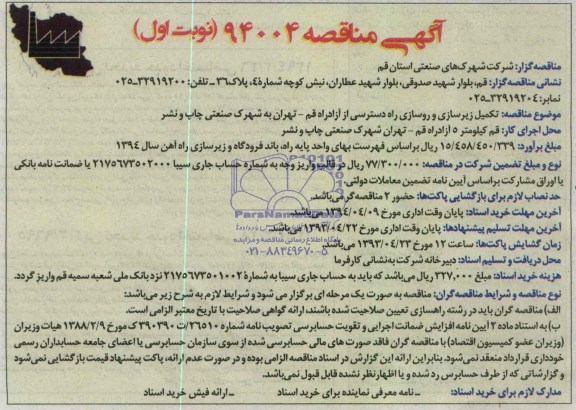 آگهی مناقصه ۹۴۰۰۴ (نوبت اول)
مناقصه‌گزار: شرکت شهرک‌های صنعتی استان قم
نشانی مناقصه‌گزار: قم، بلوار شهید صدوقی، بلوار شهید عطاران، نبش کوچه شماره ۴۵، پلاک ۳۶ ـ تلفن: ۳۲۹۱۹۲۰۰-۰۲۵
نمابر: ۳۲۹۱۹۲۰۴-۰۲۵
موضوع مناقصه: تکمیل زیرسازی و روسازی راه دسترسی از آزادراه قم - تهران به شهرک صنعتی چاپ و نشر
محل اجرای کار: قم کیلومتر ۵ آزادراه قم - تهران شهرک صنعتی چاپ و نشر
مبلغ برآورد: ۱۵/۴۵۸/۴۵۰/۳۳۹ ریال براساس فهرست بهای واحد پایه راه، باند فرودگاه و زیرسازی راه آهن سال ۱۳۹۴
نوع و مبلغ تضمین شرکت در مناقصه: ۷۷/۳۰۰/۰۰۰ ریال در قالب واریز وجه به شماره حساب جاری سیبا ۲۱۷۵۶۷۳۵۰۲۰۰۰ یا ضمانت نامه بانکی
یا اوراق مشارکت براساس آیین نامه تضمین معاملات دولتی
حد نصاب لازم برای بازگشایی پاکت‌ها: حضور ۲ مناقصه‌گر می‌باشد.
آخرین مهلت خرید اسناد: پایان وقت اداری مورخ ۱۳۹۴/۰۴/۰۹ می‌باشد.
آخرین مهلت تسلیم پیشنهادها: پایان وقت اداری مورخ ۱۳۹۳/۰۴/۲۲ می‌باشد.
زمان گشایش پاکت‌ها: ساعت ۱۲ مورخ ۱۳۹۳/۰۴/۲۳ می‌باشد.
محل دریافت و تسلیم اسناد: دبیرخانه شرکت به‌نشانی کارفرما
پایگاه اطلاع رسانی مناقصه و مزایده
۰۲۱-۸۸۳۴۹۶۷۰-۵
هزینه خرید اسناد: مبلغ ۳۲۷,۰۰۰ ریال می‌باشد که باید به حساب جاری سیبا به شماره ۲۱۷۵۶۷۳۵۰۱۰۰۲ نزد بانک ملی شعبه سمیه قم واریز گردد.
نوع مناقصه و شرایط مناقصه‌گران: مناقصه به صورت یک مرحله ای برگزار می شود و شرایط لازم به شرح زیر می‌باشد:
الف) مناقصه گران باید در رشته راهسازی تعیین صلاحیت شده باشند، ارائه گواهی صلاحیت با تاریخ معتبر الزامی است.
ب) به استناد ماده ۲ آیین نامه افزایش ضمانت اجرایی و تقویت حسابرسی تصویب نامه شماره ۲۶۵۱۰/ت ۳۹۰۳۹۰ک مورخ ۱۳۸۸/۲/۹ هیات وزیران
(وزیران عضو کمیسیون اقتصاد) با مناقصه گران فاقد صورت های مالی حسابرسی شده از سوی سازمان حسابرسی یا اعضای جامعه حسابداران رسمی
خودداری قرارداد منعقد نمی‌شود. بنابراین ارائه این گزارش در اسناد مناقصه الزامی بوده و در صورت عدم ارائه، پاکت پیشنهاد قیمت بازگشایی نمی‌شود
و گزارشاتی که از طرف حسابرس رد شده و یا اظهار نظر نشده قابل قبول نمی‌باشد.
مدارک لازم برای خرید اسناد: ـ نامه معرفی نماینده برای خرید اسناد ـ ارائه فیش خرید اسناد